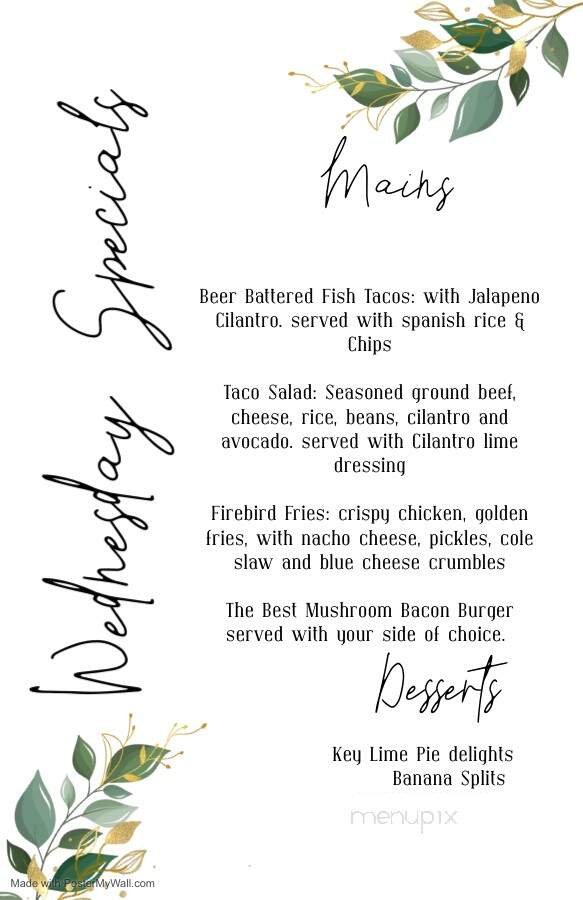 Wednesday Specials
Mains
Beer Battered Fish Tacos: with Jalapeno
Cilantro. served with spanish rice &
Chips
Taco Salad: Seasoned ground beef,
cheese, rice, beans, cilantro and
avocado. served with Cilantro lime
dressing
Firebird Fries: crispy chicken, golden
fries, with nacho cheese, pickles, cole
slaw and blue cheese crumbles
The Best Mushroom Bacon Burger
served with your side of choice.
Desserts
Key Lime Pie delights
Banana Splits
menupix
Made with PosterMyWall.com